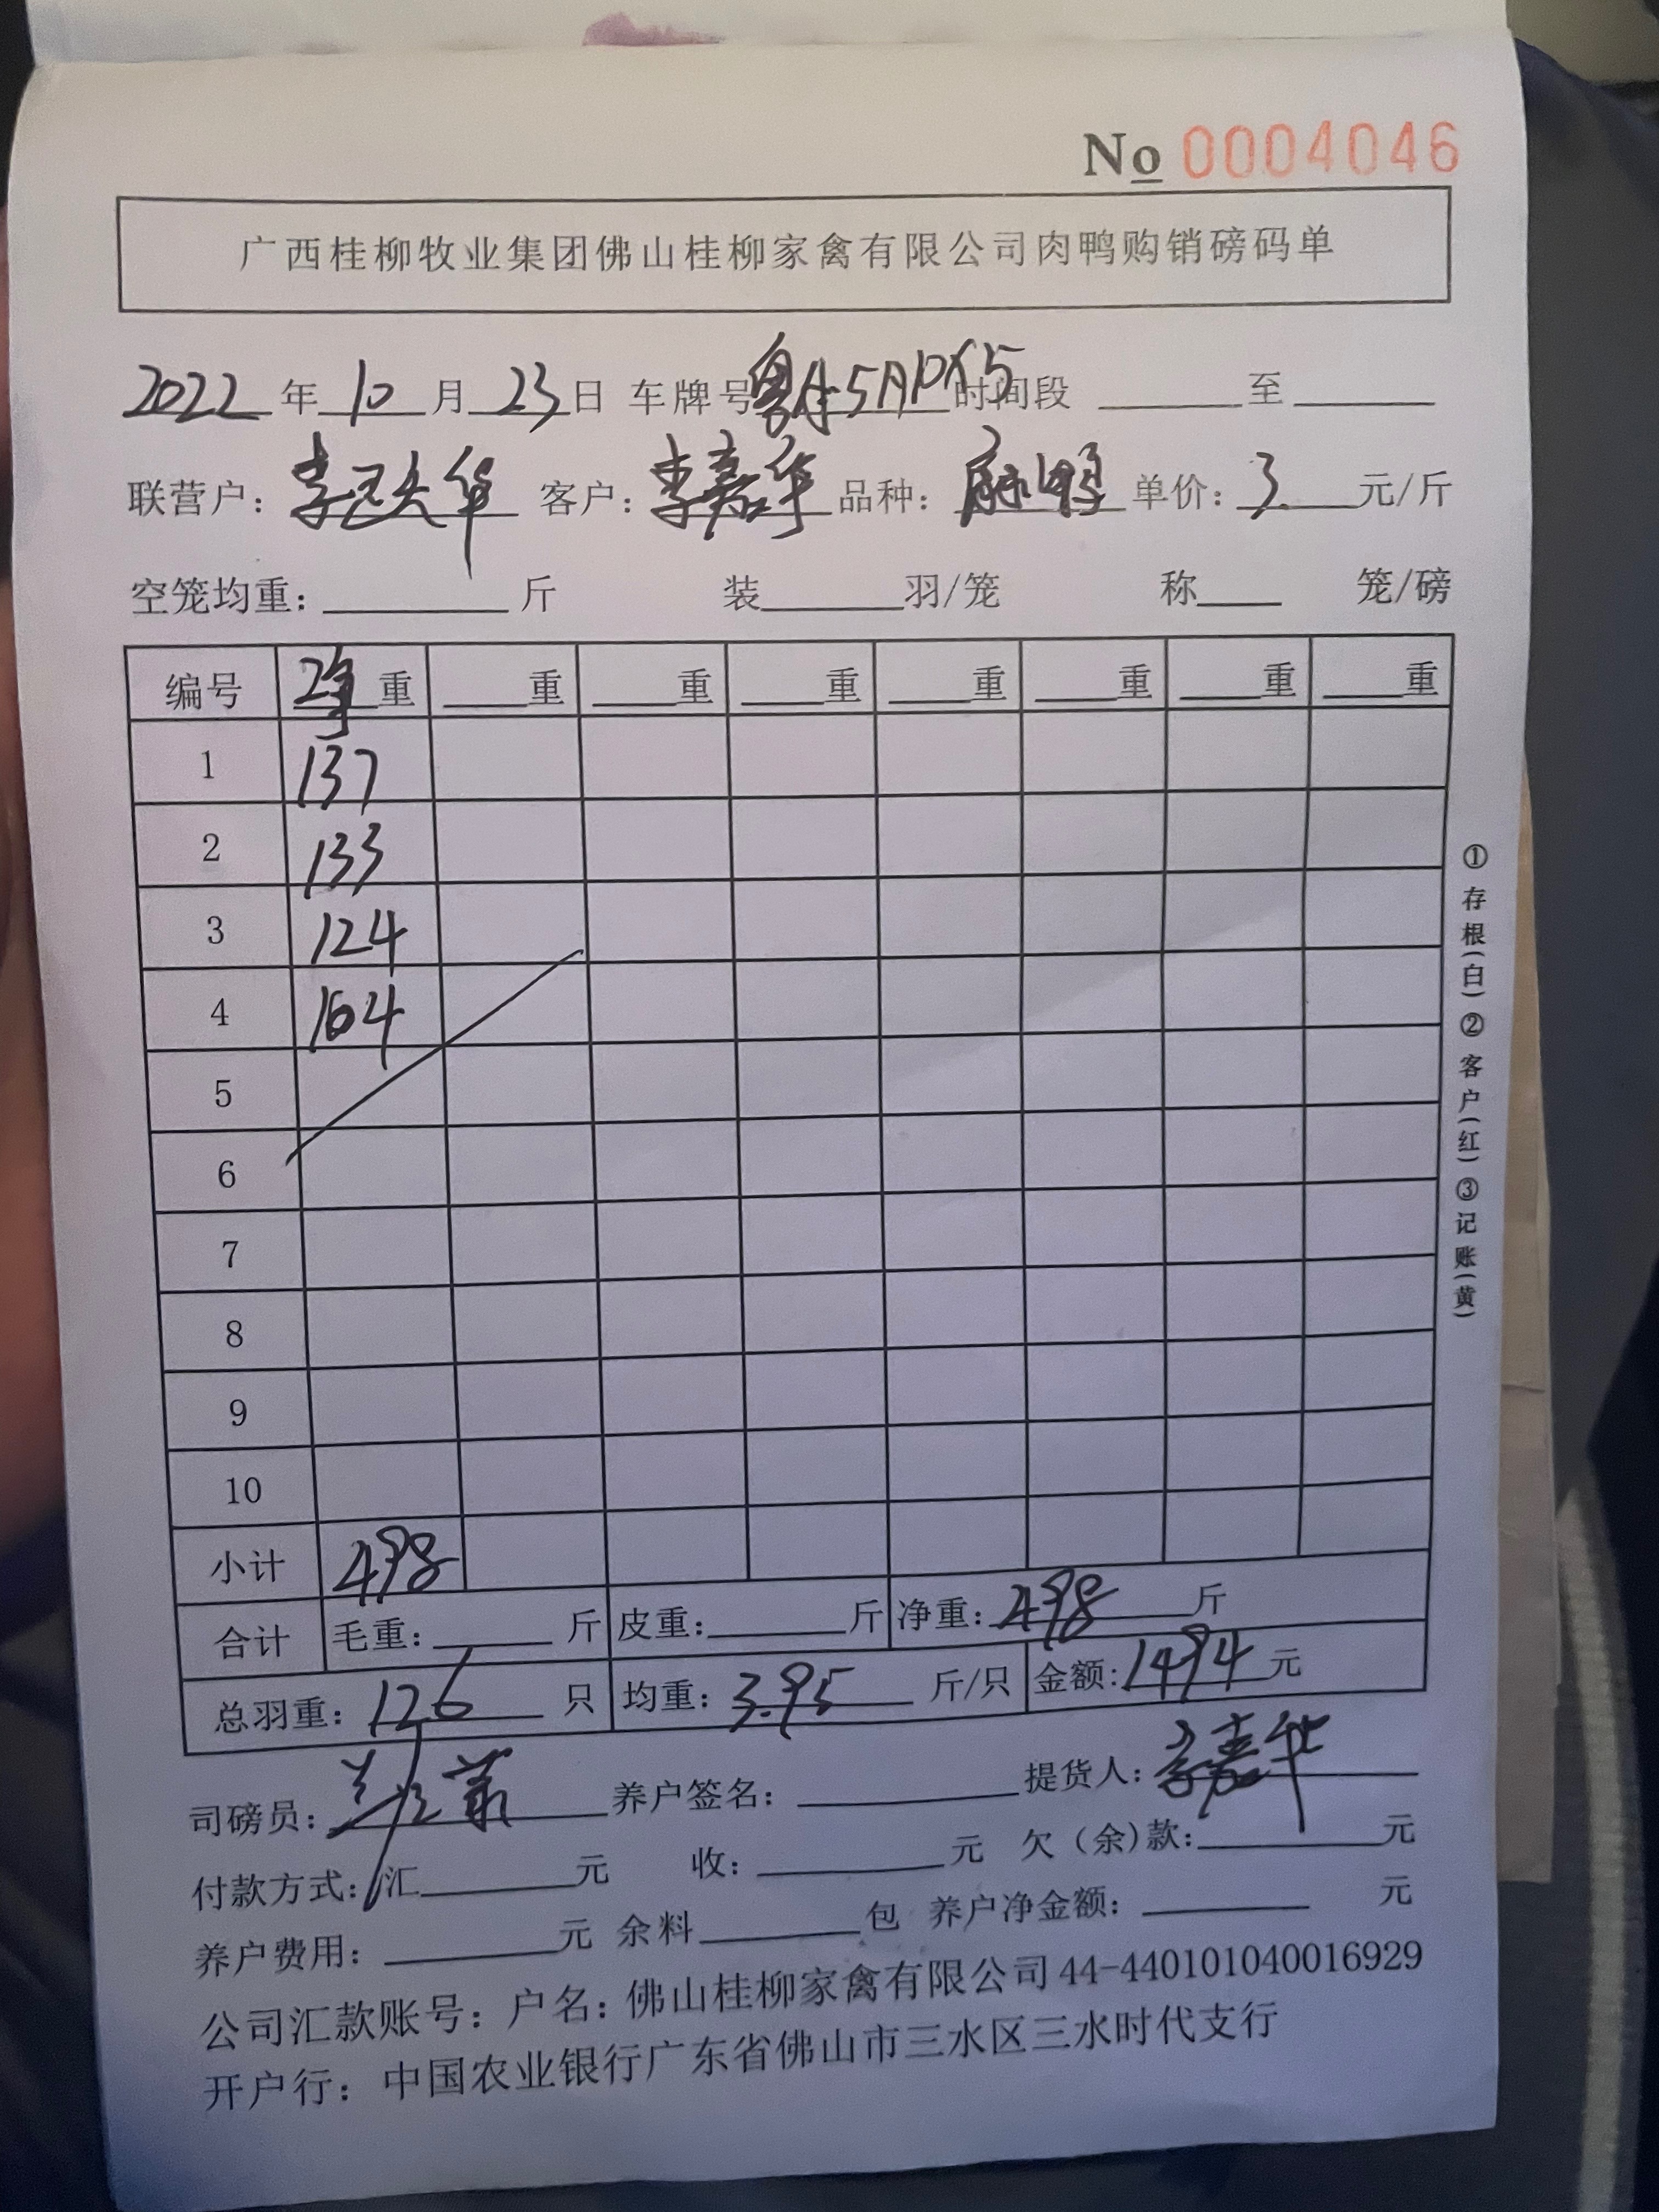 No 0004046
广西桂柳牧业集团佛山桂柳家禽有限公司肉鸭购销磅码单
2022年10月23日 车牌号 时间段 至
联营户: 李 华 客户: 李嘉华 品种: 麻鸭 单价: 3. 元/斤
空笼均重: 斤 装 羽/笼 称 笼/磅
编号 净重 重 重 重 重 重 重 重
1 137
2 133
3 124
4 164
5
6
7
8
9
10
小计 498
合计 毛重: 斤 皮重: 斤 净重: 498 斤
总羽重: 126 只 均重: 3.95 斤/只 金额: 1494 元
司磅员: 养户签名: 提货人: 李嘉华
付款方式: 汇 元 收: 元 欠(余)款: 元
养户费用: 元 余料 包 养户净金额: 元
公司汇款账号: 户名: 佛山桂柳家禽有限公司 44-440101040016929
开户行: 中国农业银行广东省佛山市三水区三水时代支行
①存根(白)②客户(红)③记账(黄)